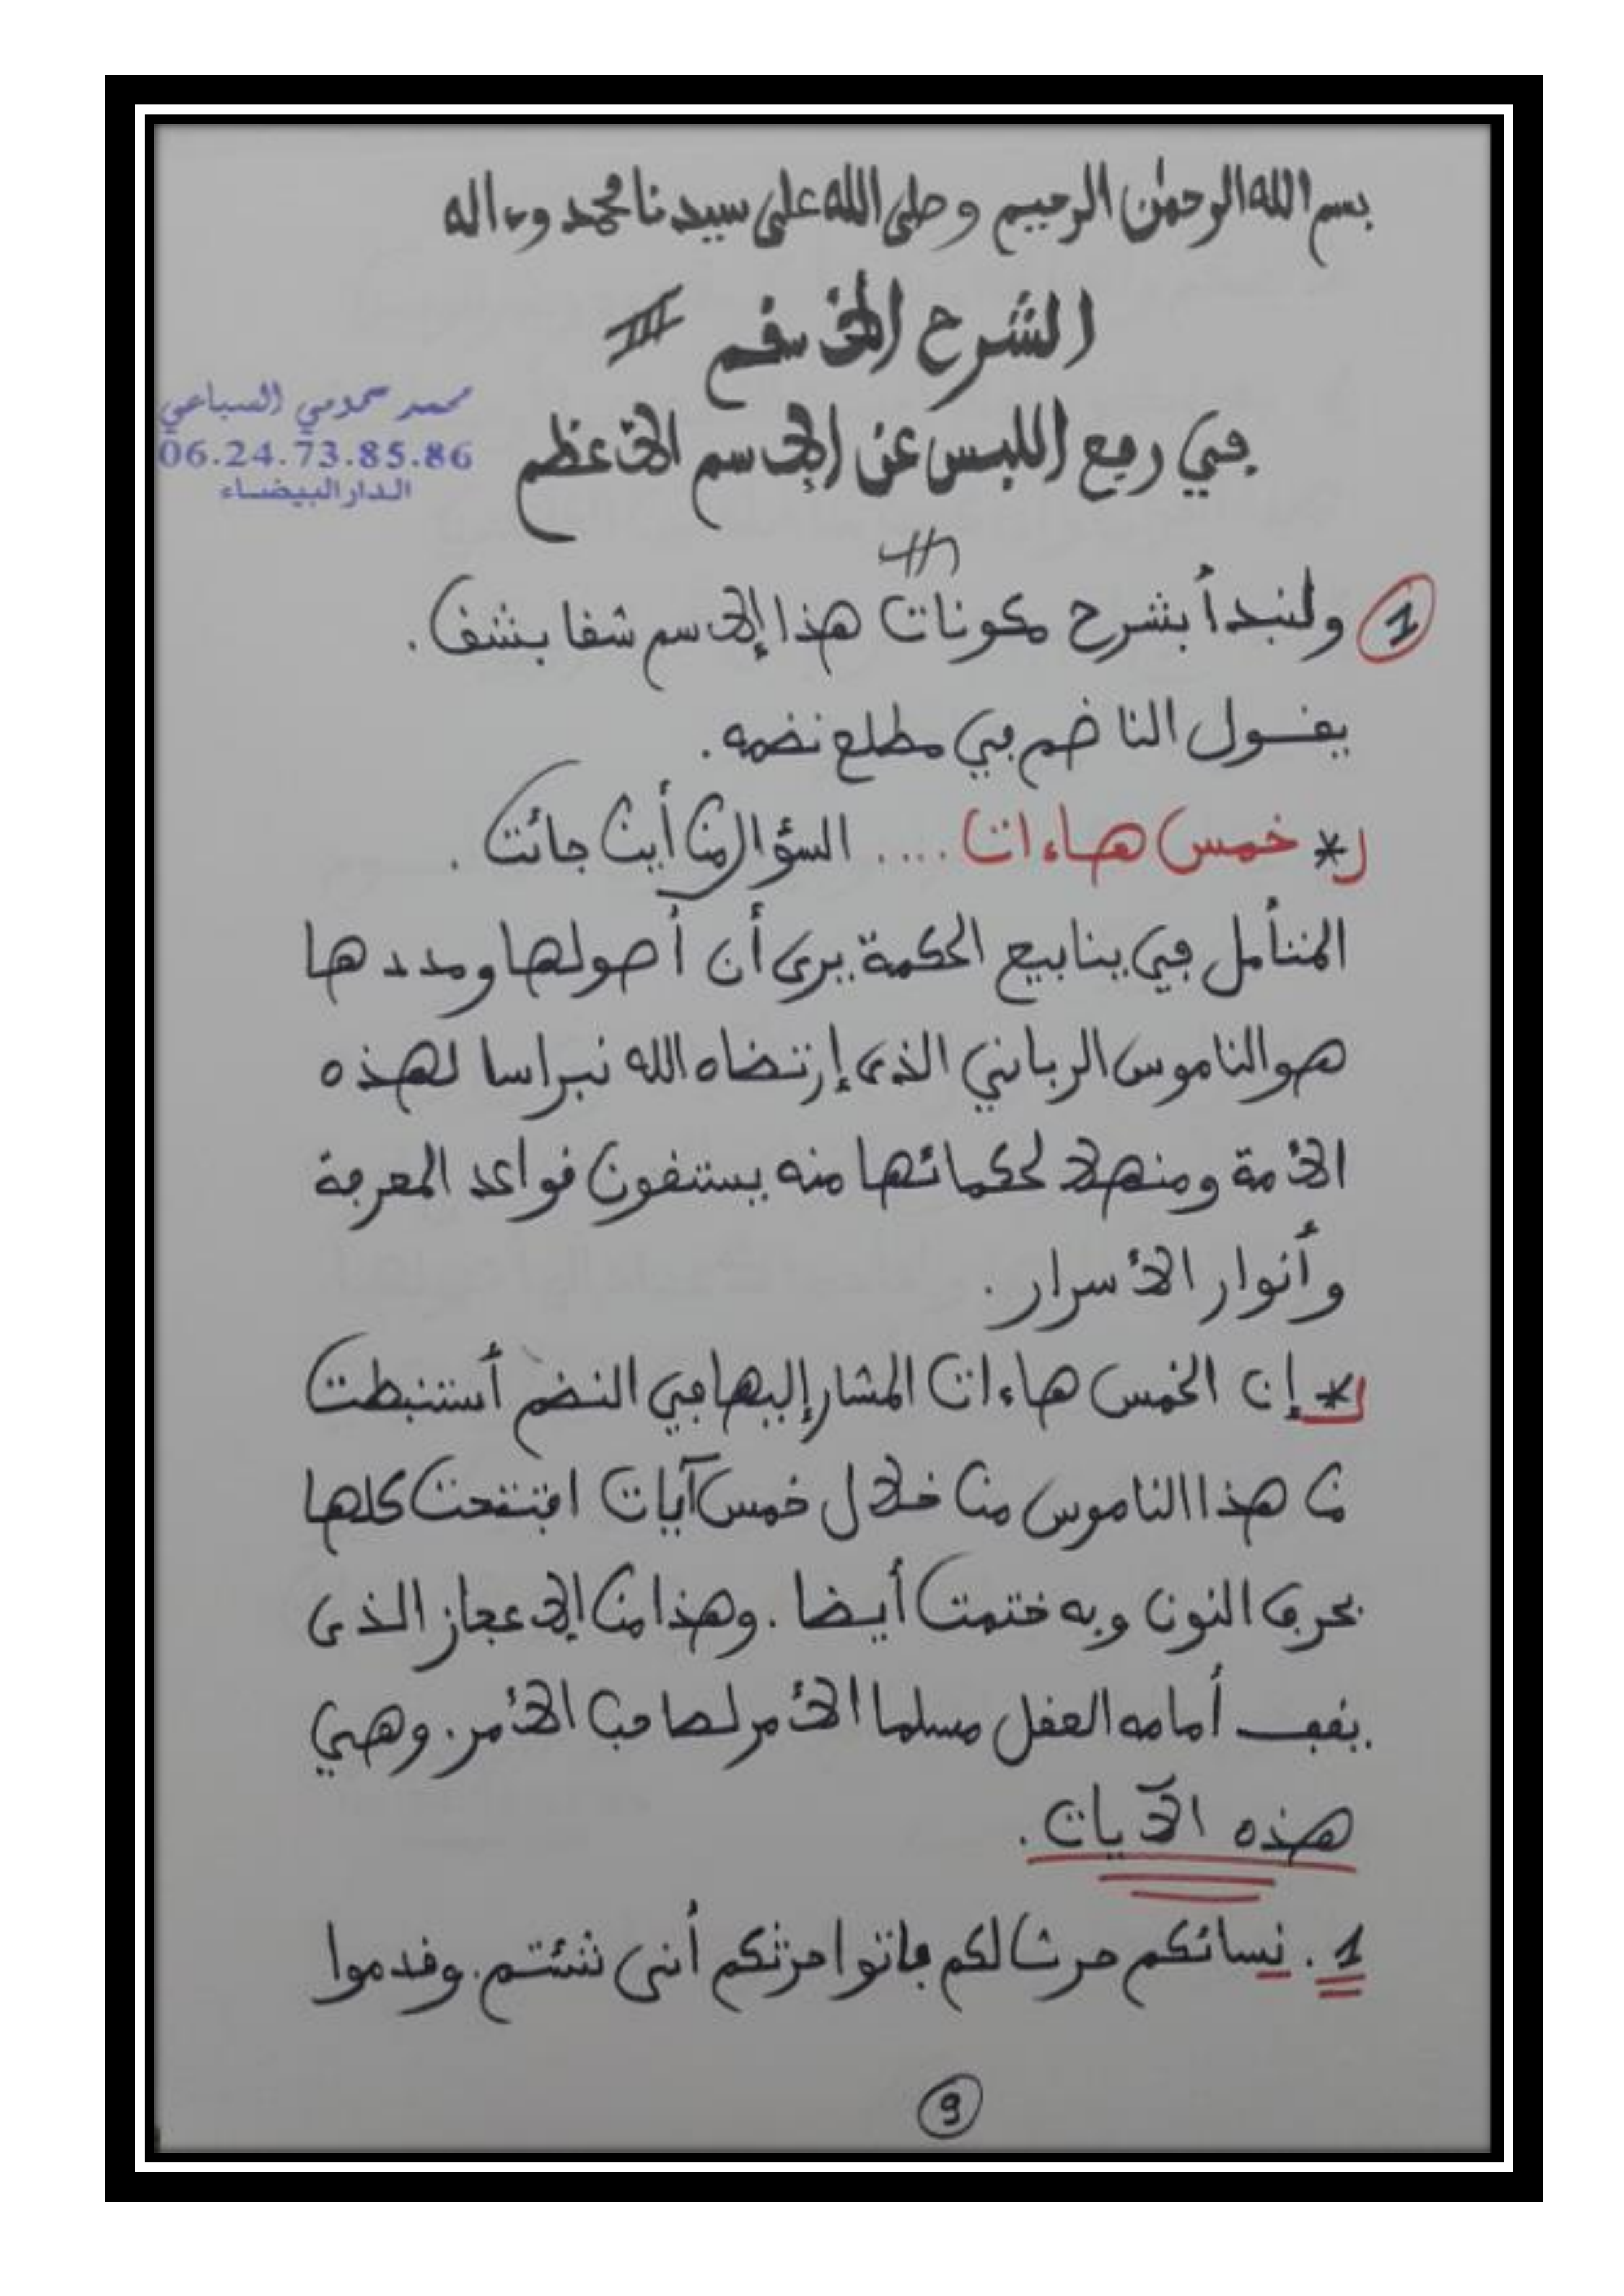 بسم الله الرحمن الرحيم وصلى الله على سيدنا محمد وءاله
الشرح الأقسم III
محمد حمومي السباعي
06.24.73.85.86
الدار البيضاء
في رفع اللبس عن الإسم الأعظم
1 ولنبدأ بشرح مكونات هذا الإسم شقا بشق.
يقول الناضم في مطلع نضمه.
* خمس هاءات .... السؤال من أين جائت.
المتأمل في ينابيع الحكمة يرى أن أصولها ومددها
هو الناموس الرباني الذى إرتضاه الله نبراسا لهذه
الأمة ومنهلا لحكمائها منه يستقون قواعد المعرفة
وأنوار الأسرار.
* إن الخمس هاءات المشار إليها في النضم أستنبطت
من هذا الناموس من خلال خمس آيات افتتحت كلها
بحرف النون وبه ختمت أيضا. وهذا من الإعجاز الذى
يقف أمامه العقل مسلما الأمر لصاحب الأمر. وهي
هذه الآيات.
1. نسائكم حرث لكم فاتوا حرثكم أنى شئتم. وقدموا
9